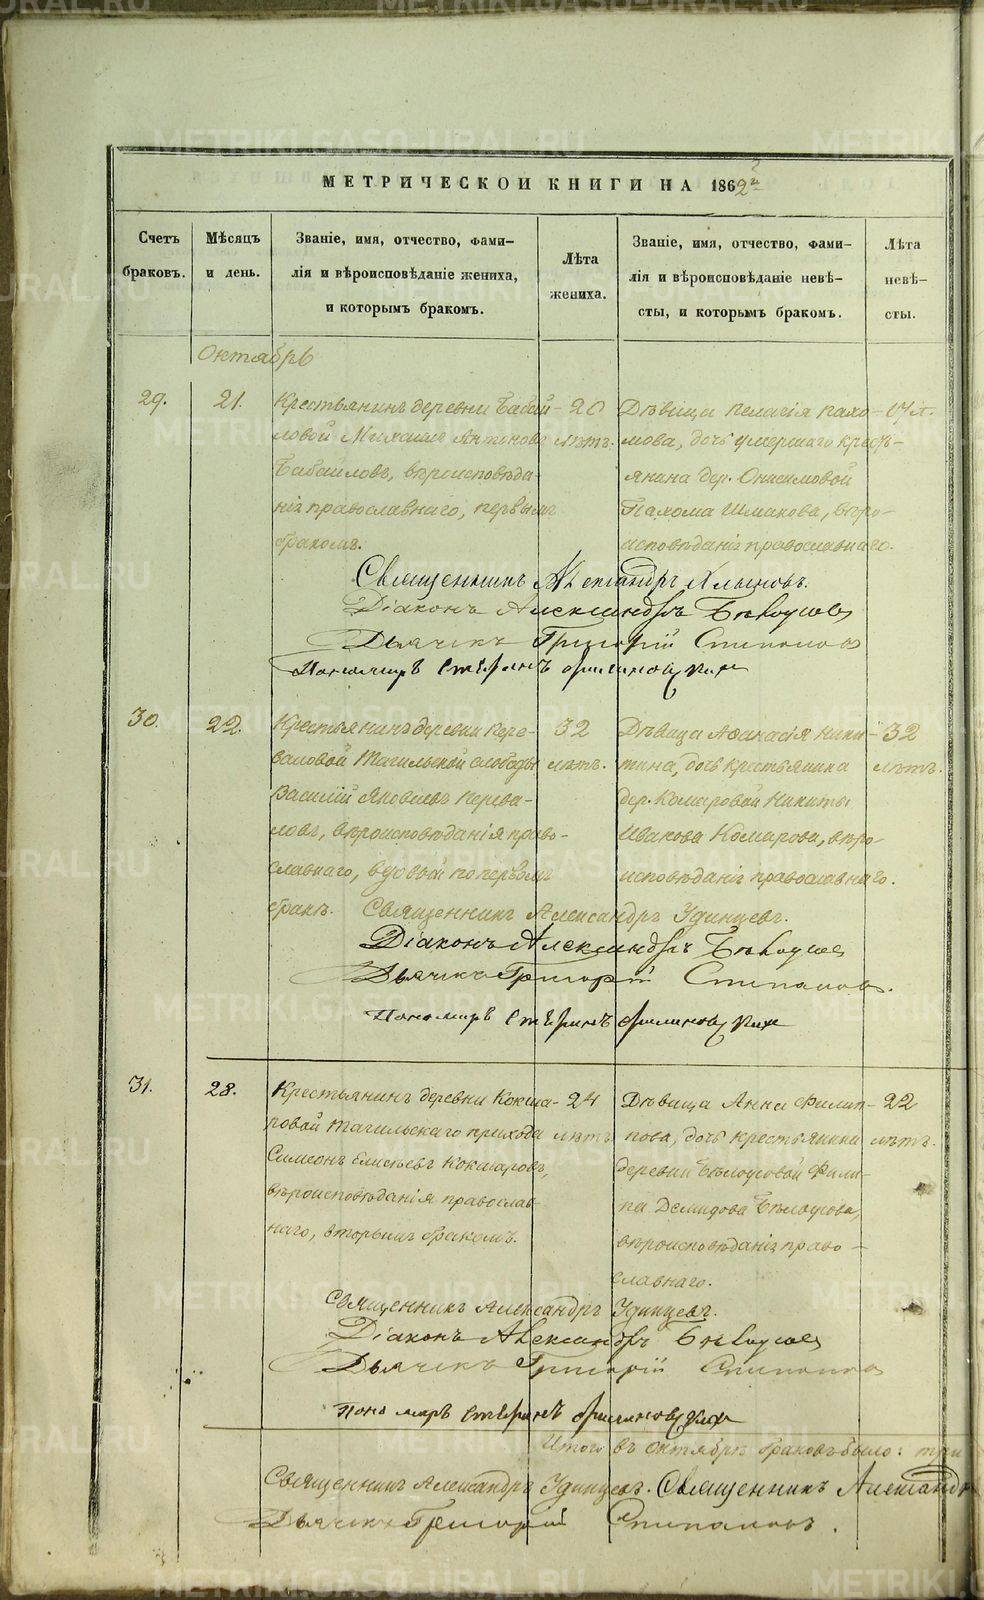 МЕТРИЧЕСКОЙ КНИГИ НА 1862й
Счетъ браковъ.
Мѣсяцъ и день.
Званіе, имя, отчество, фами-
лія и вѣроисповѣданіе жениха,
и которымъ бракомъ.
Лѣта
жениха.
Званіе, имя, отчество, фами-
лія и вѣроисповѣданіе невѣ-
сты, и которымъ бракомъ.
Лѣта
невѣ-
сты.
Октябрь
29.
21.
Крестьянинъ деревни Бабай-
ловой Антоновъ
Бабайловъ, вѣроисповѣда-
нія православнаго, первымъ
бракомъ.
20
лѣтъ.
Дѣвица Пелагія Пахо-
мова, дочь умершаго кресть-
янина дер. Онисимовой
Пахома Шмакова, вѣро-
исповѣданія православнаго.
17 л.
Священникъ Александръ
Діаконъ Александръ Бѣлоусовъ
Дьячекъ Григорій
Пономарь
30.
22.
Крестьянинъ деревни Пере-
валовой Тагильской слободы
Василій Яковлевъ Перева-
ловъ, вѣроисповѣданія право-
славнаго, вдовый по первомъ
бракѣ.
32
лѣтъ.
Дѣвица Афанасія Ники-
тина, дочь крестьянина
дер. Комаровой Никиты
Иванова Комарова, вѣро-
исповѣданія православнаго.
32
лѣтъ.
Священникъ Александръ Удинцевъ.
Діаконъ Александръ Бѣлоусовъ
Дьячекъ Григорій
Пономарь
31.
28.
Крестьянинъ деревни Кокша-
ровой Тагильскаго прихода
Симеонъ Елисѣевъ Кокшаровъ,
вѣроисповѣданія православ-
наго, вторымъ бракомъ.
24
лѣтъ
Дѣвица Анна Филип-
пова, дочь крестьянина
деревни Бѣлоусовой Фили-
па Демидова Бѣлоусова,
вѣроисповѣданія право-
славнаго.
22
лѣтъ.
Священникъ Александръ Удинцевъ.
Діаконъ Александръ Бѣлоусовъ
Дьячекъ Григорій
Пономарь
Итого въ октябрѣ браковъ было: три
Священникъ Александръ Удинцевъ. Священникъ Александръ
Дьячекъ Григорій
METRIKI.GASO-URAL.RU